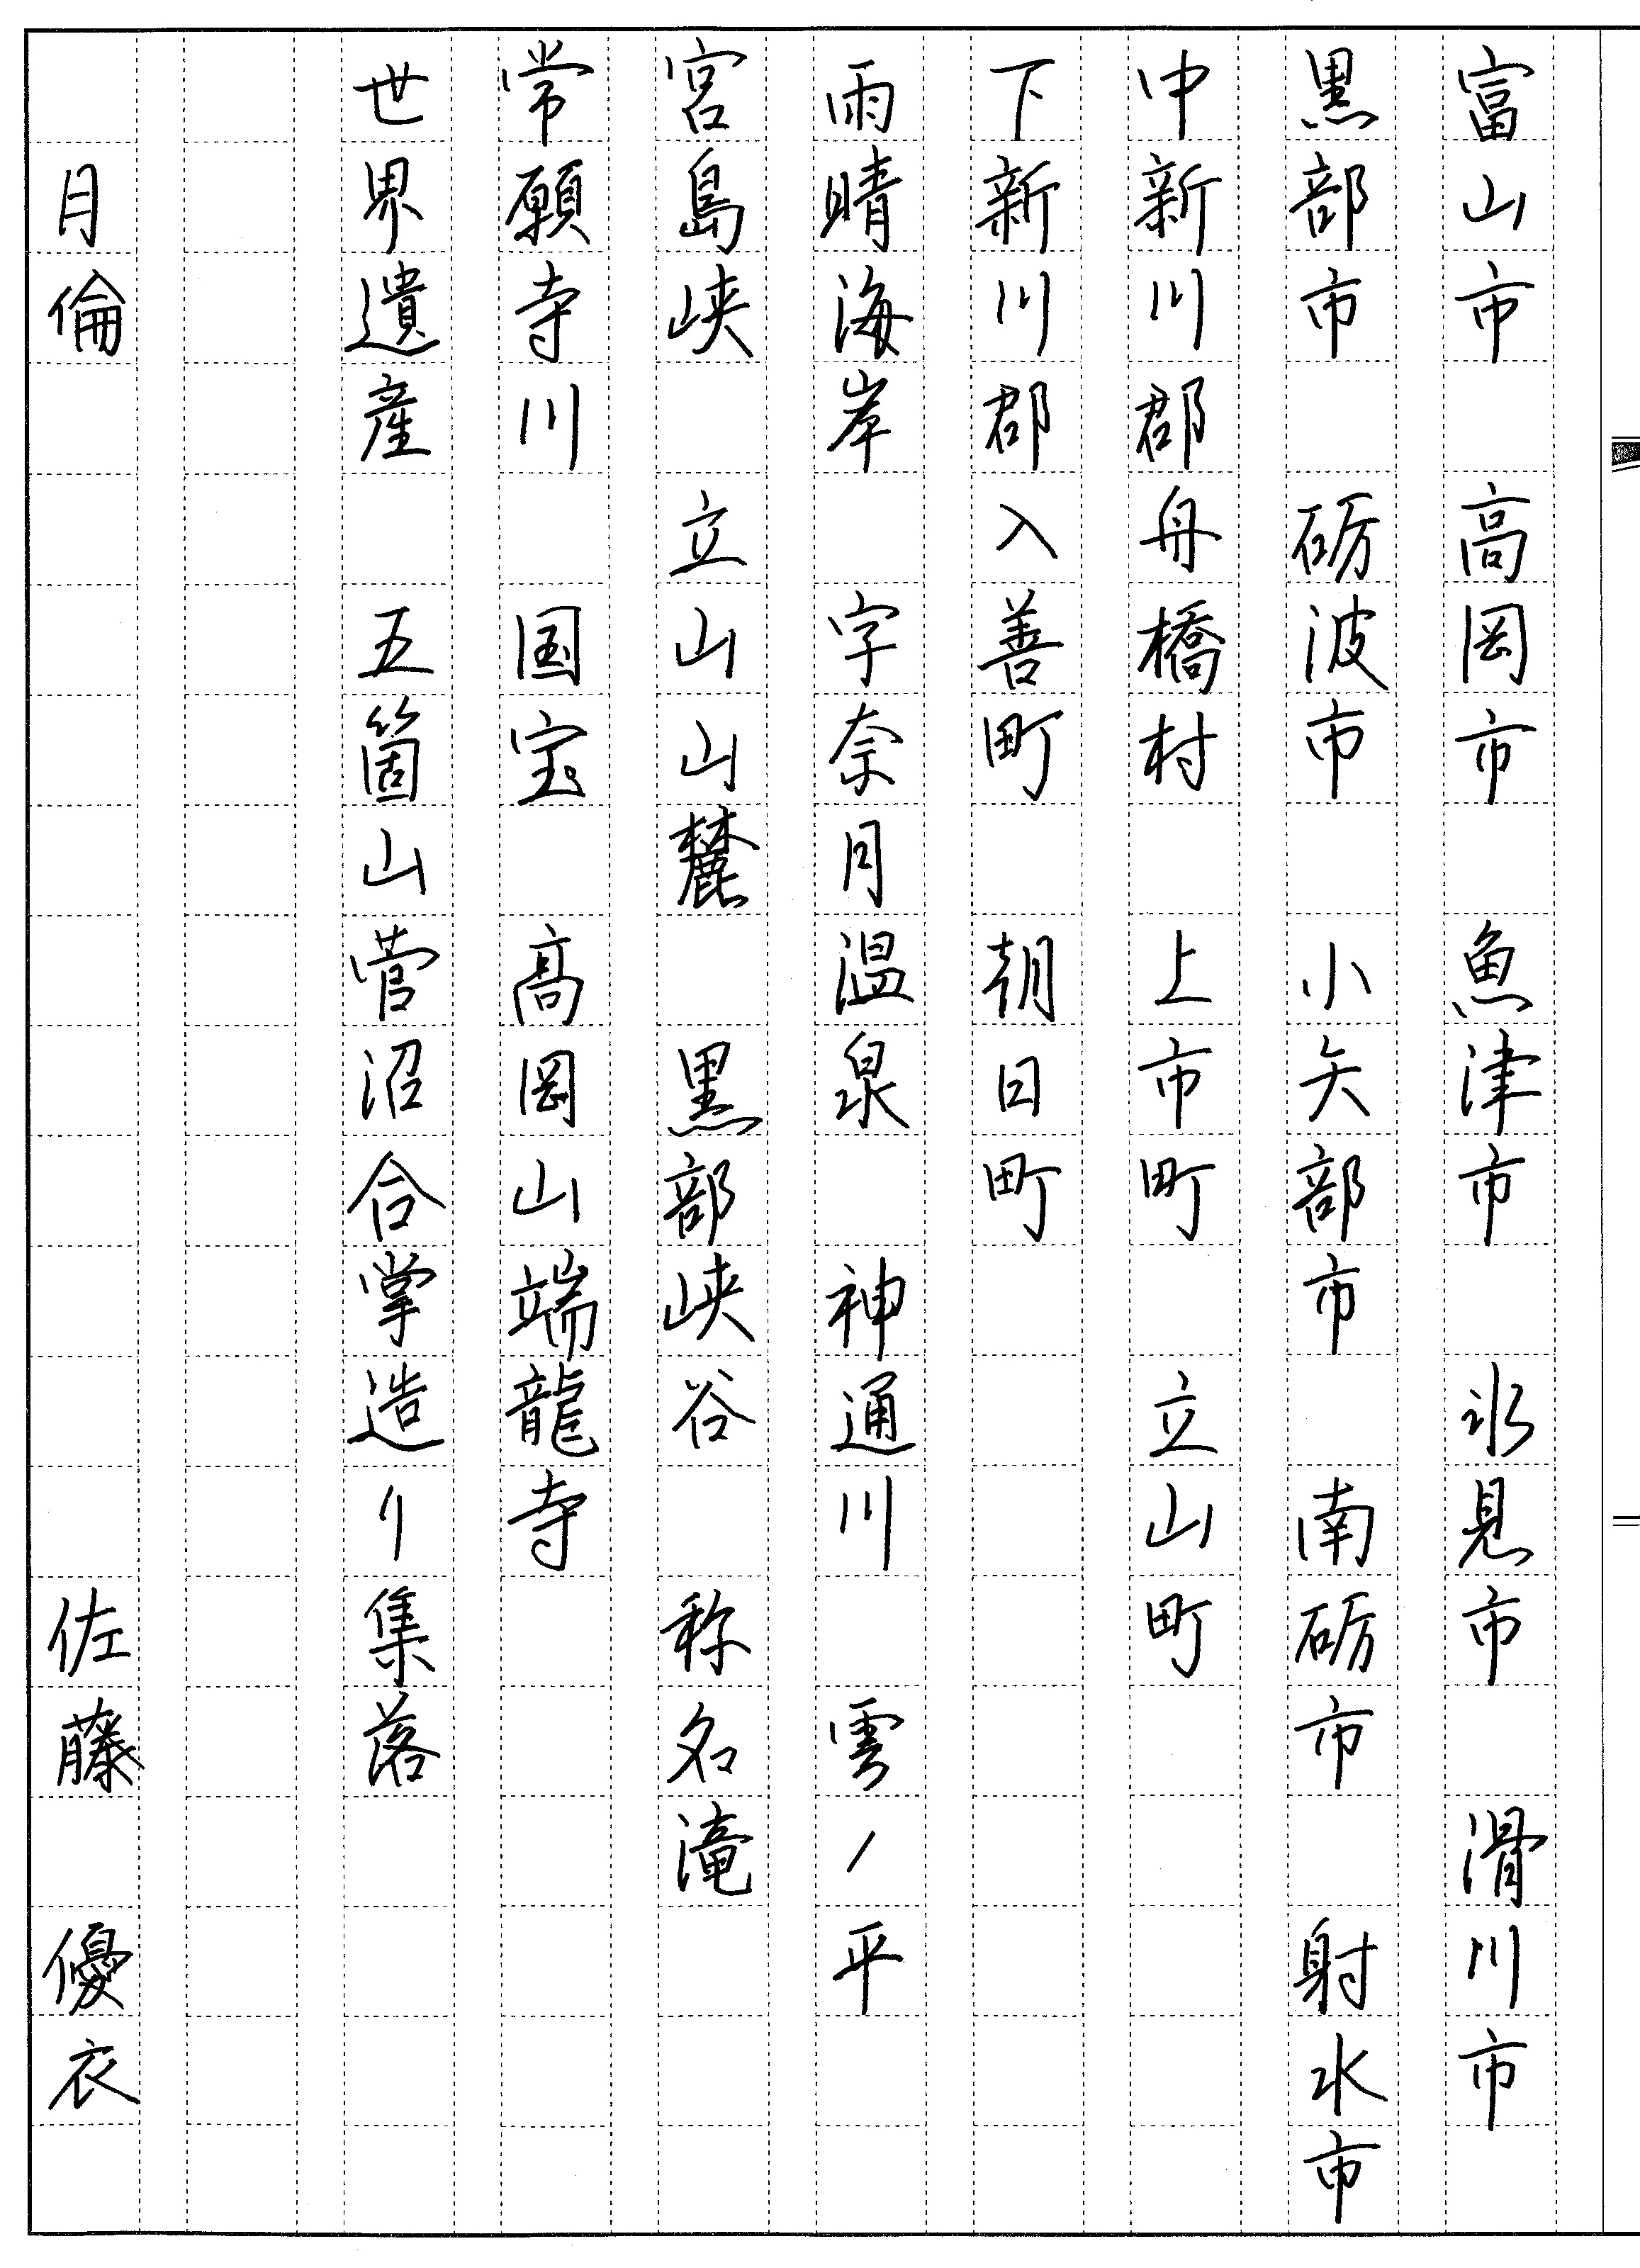 富山市　高岡市　魚津市　氷見市　滑川市
黒部市　砺波市　小矢部市　南砺市　射水市
中新川郡舟橋村　上市町　立山町
下新川郡入善町　朝日町
雨晴海岸　宇奈月温泉　神通川　雲ノ平
宮島峡　立山山麓　黒部峡谷　称名滝
常願寺川　国宝　高岡山瑞龍寺
世界遺産　五箇山菅沼合掌造り集落
月倫　佐藤　優衣